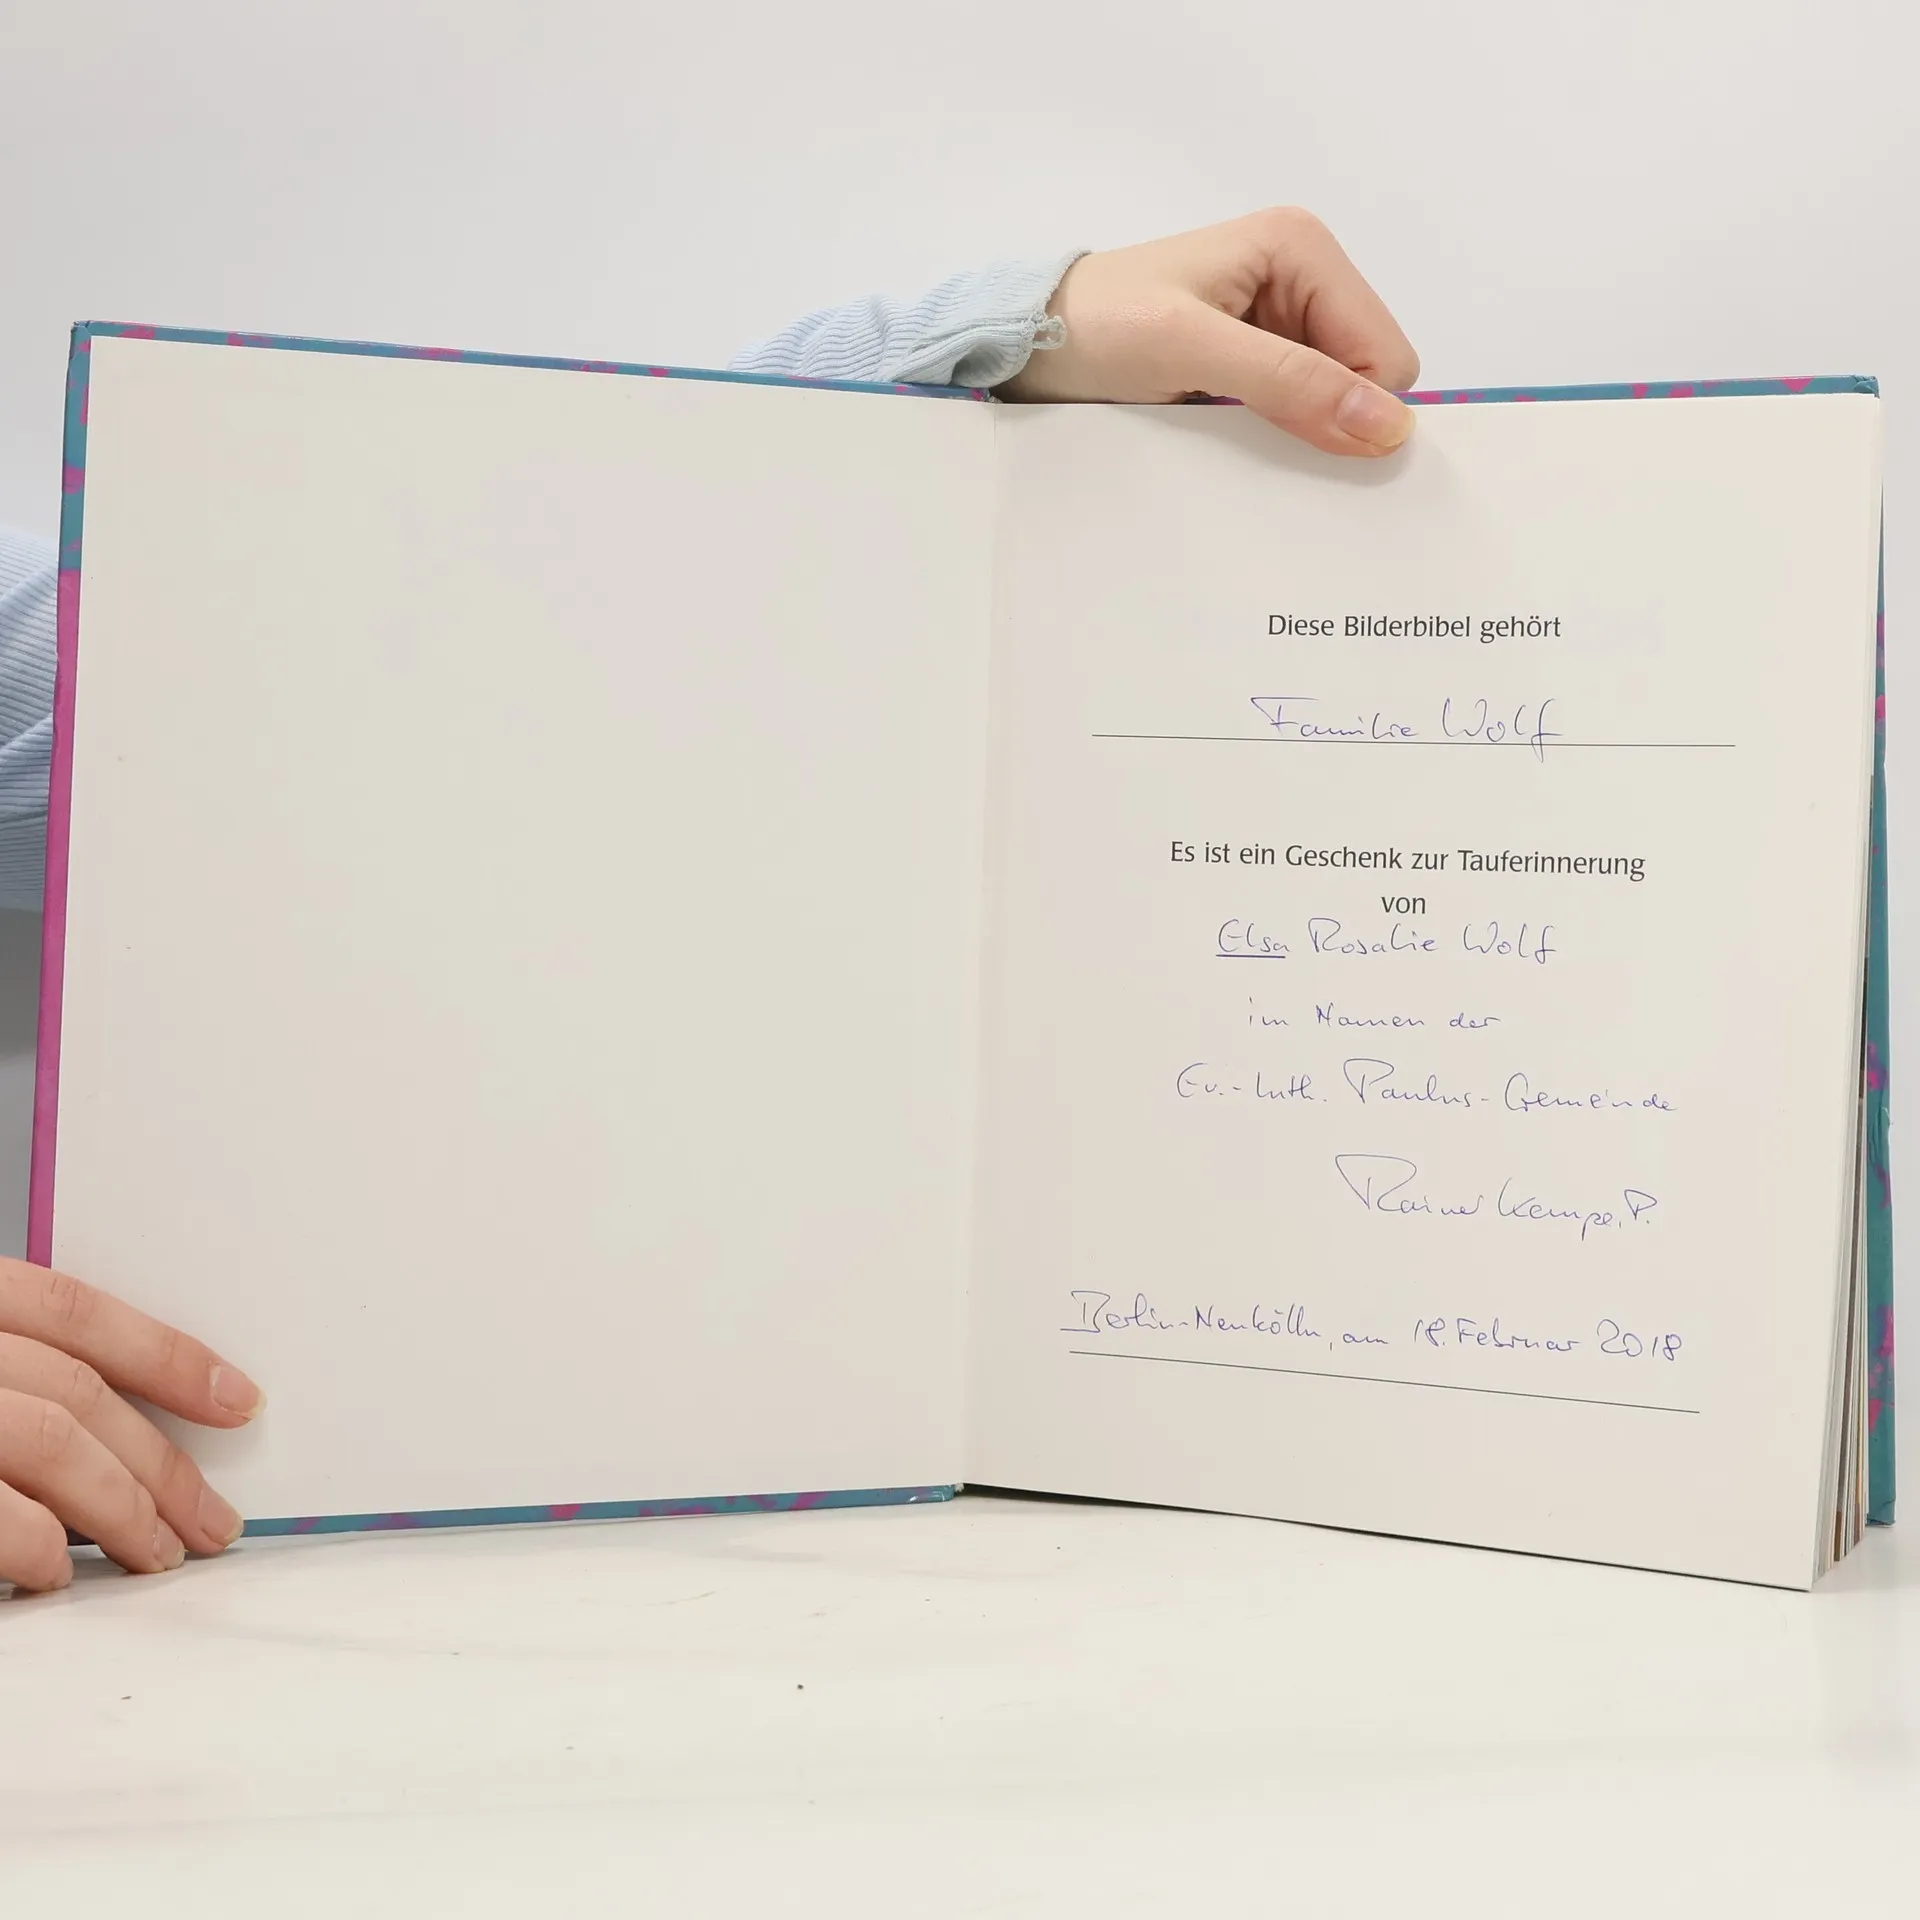 Diese Bilderbibel gehört
Familie Wolf
Es ist ein Geschenk zur Tauferinnerung
von
Elsa Rosalie Wolf
im Namen der
Ev.-Luth. Paulus-Gemeinde
Rainer Kempe, P.
Berlin-Neukölln, am 18. Februar 2018